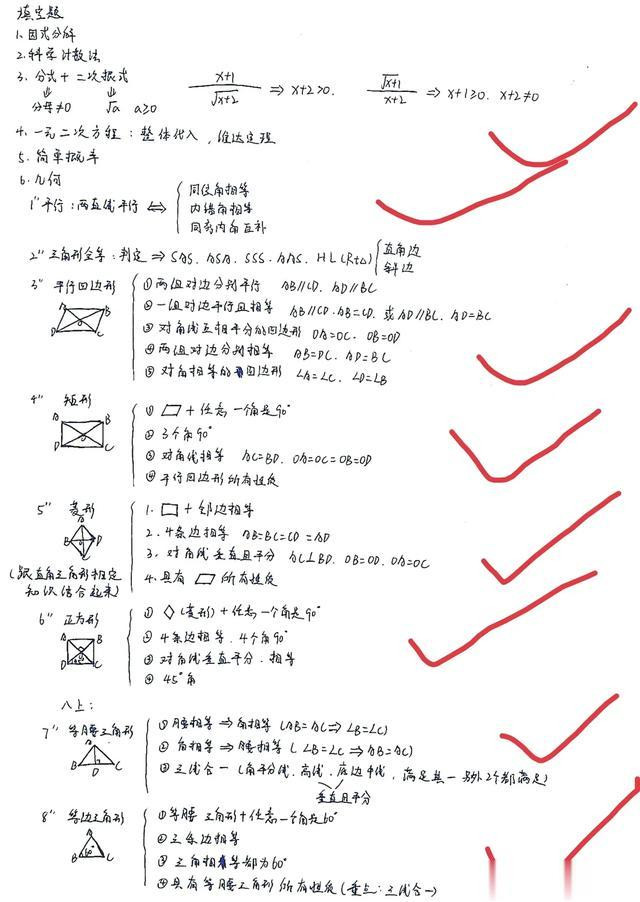 填空题
1.因式分解
2.科学计数法
3.分式+二次根式 x+1/√x+2 ⇒ x+2>0. √x+1/x+2 ⇒ x+1≥0. x+2≠0
⇓ ⇓
分母≠0 √a a≥0
4.一元二次方程:整体代入,维达定理
5.简单概率
6.几何
1"平行:两直线平行 ⇔ 同位角相等
内错角相等
同旁内角互补
2"三角形全等:判定 ⇒ SAS. ASA. SSS. AAS. HL(Rt△) 直角边
斜边
3"平行四边形 ①两组对边分别平行 AB∥CD. AD∥BC
A B D C O
②一组对边平行且相等 AB∥CD.AB=CD. 或 AD∥BC. AD=BC
③对角线互相平分的四边形 OA=OC. OB=OD
④两组对边分别相等 AB=DC. AD=BC
⑤对角相等的四边形 ∠A=∠C. ∠D=∠B
4"矩形 ①▱+任意一个角是90°
A B D C O
②3个角90°
③对角线相等 AC=BD. OA=OC=OB=OD
④平行四边形所有性质
5"菱形 1.▱+邻边相等
A B D C
2.4条边相等 AB=BC=CD=AD
3.对角线垂直且平分 AC⊥BD. OB=OD.OA=OC
(跟直角三角形相定 4.具有▱所有性质
知识结合起来)
6"正方形 ①◇(菱形)+任意一个角是90°
A B D C 45°
②4条边相等.4个角90°
③对角线垂直平分.相等
④45°角
八上:
7"等腰三角形 ①腰相等⇒角相等(AB=AC⇒∠B=∠C)
A B D C
②角相等⇒腰相等(∠B=∠C⇒AB=AC)
③三线合一(角平分线.高线.底边中线,满足其一另外2个都满足)
垂直且平分
8"等边三角形 ①等腰三角形+任意一个角是60°
A B C 60°
②三条边相等
③三角相等都为60°
④具有等腰三角形所有性质(重点:三线合一)